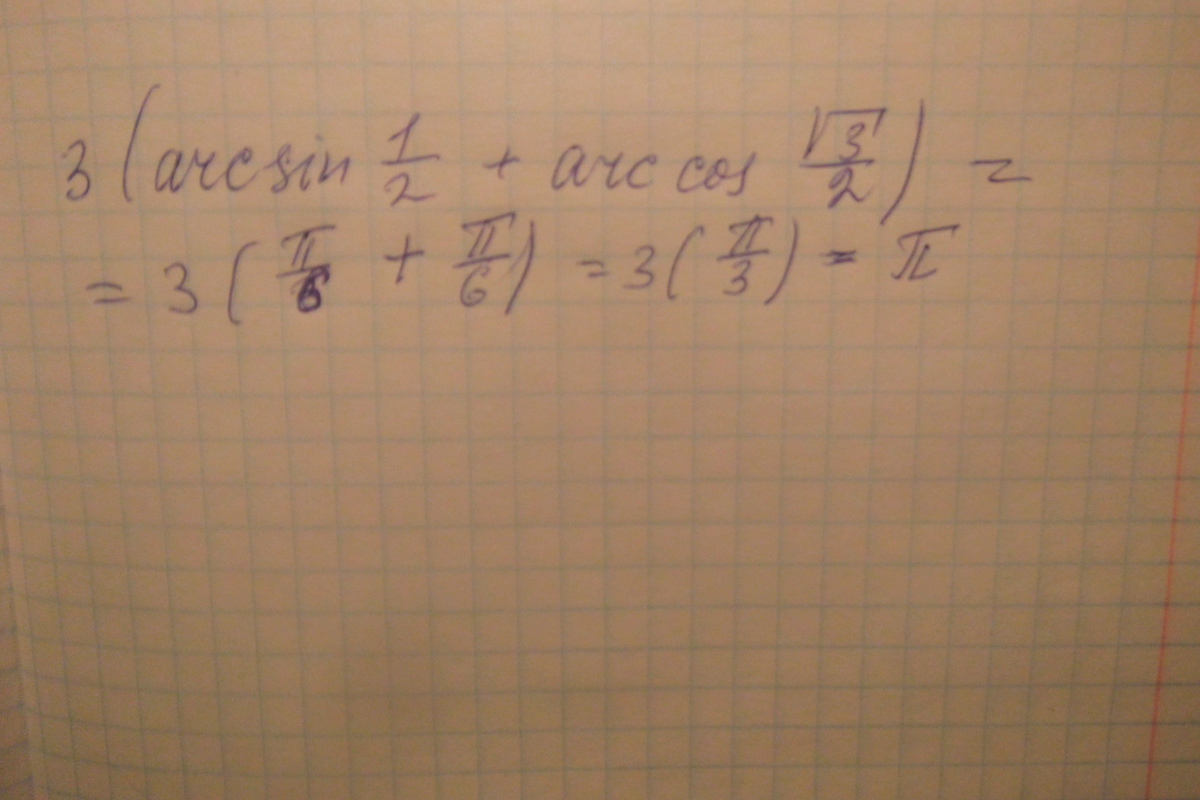 3 (arcsin 1/2 + arccos √3/2) =
= 3 (π/6 + π/6) = 3 (π/3) = π